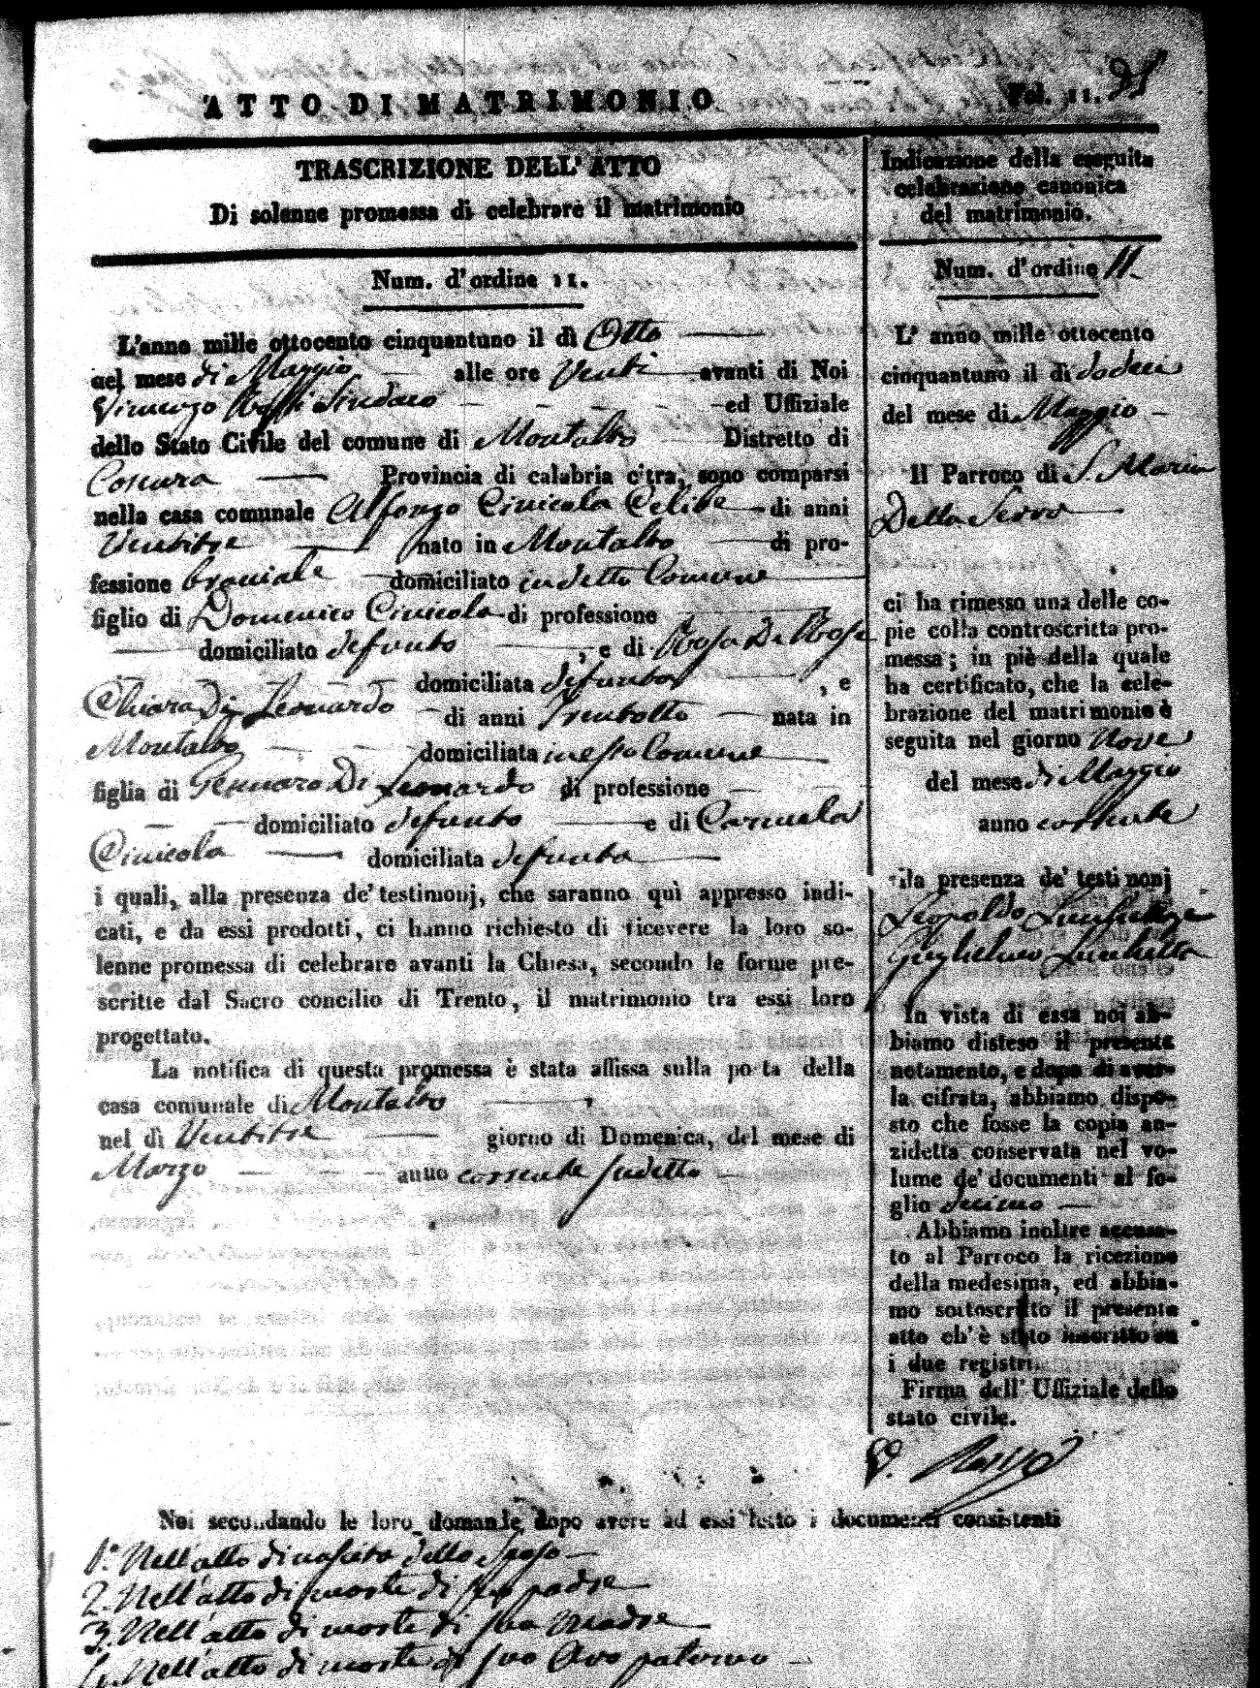 ATTO DI MATRIMONIO
Fol. 11.
TRASCRIZIONE DELL' ATTO
Di solenne promessa di celebrare il matrimonio
Num. d'ordine 11.
L'anno mille ottocento cinquantuno il dì Otto
nel mese di Maggio alle ore Venti avanti di Noi
Vincenzo Rossi Sindaco ed Uffiziale
dello Stato Civile del comune di Montalto Distretto di
Cosenza Provincia di calabria citra, sono comparsi
nella casa comunale Alfonzo Civicola Celibe di anni
Ventitre nato in Montalto di pro-
fessione braciale domiciliato in detto Comune
figlio di Domenico Civicola di professione
domiciliato defunto , e di Rosa De Rose
domiciliata defunta , e
Chiara Di Leonardo di anni Trentotto nata in
Montalto domiciliata in esso Comune
figlia di Gennaro Di Leonardo di professione
domiciliato defunto e di Carmela
Civicola domiciliata defunta
i quali, alla presenza de' testimonj, che saranno quì appresso indi-
cati, e da essi prodotti, ci hanno richiesto di ricevere la loro so-
lenne promessa di celebrare avanti la Chiesa, secondo le forme pre-
scritte dal Sacro concilio di Trento, il matrimonio tra essi loro
progettato.
La notifica di questa promessa è stata affissa sulla po ta della
casa comunale di Montalto
nel dì Ventitre giorno di Domenica, del mese di
Marzo anno corrente sudetto
Indicazione della eseguita
celebrazione canonica
del matrimonio.
Num. d'ordine 11.
L' anno mille ottocento
cinquantuno il dì dodeci
del mese di Maggio
Il Parroco di S. Maria
Della Serra
ci ha rimesso una delle co-
pie colla controscritta pro-
messa; in piè della quale
ha certificato, che la cele-
brazione del matrimonio è
seguita nel giorno Nove
del mese di Maggio
anno corrente
alla presenza de' testimonj
Leopoldo
Guglielmo Lucchetta
In vista di essa noi ab-
biamo disteso il presente
notamento, e dopo di aver-
la cifrata, abbiamo dispo-
sto che fosse la copia an-
zidetta conservata nel vo-
lume de' documenti al fo-
glio decimo
Abbiamo inoltre accusa-
to al Parroco la ricezione
della medesima, ed abbia-
mo sottoscritto il presente
atto ch' è stato inscritto su
i due registri.
Firma dell' Uffiziale dello
stato civile.
V. Rossi
Noi secondando le loro domande dopo avere ad essi letto i documenti consistenti
1.° Nell'atto di nascita dello Sposo
2. Nell'atto di morte di suo padre
3. Nell'atto di morte di sua Madre
4. Nell'atto di morte di suo Avo paterno